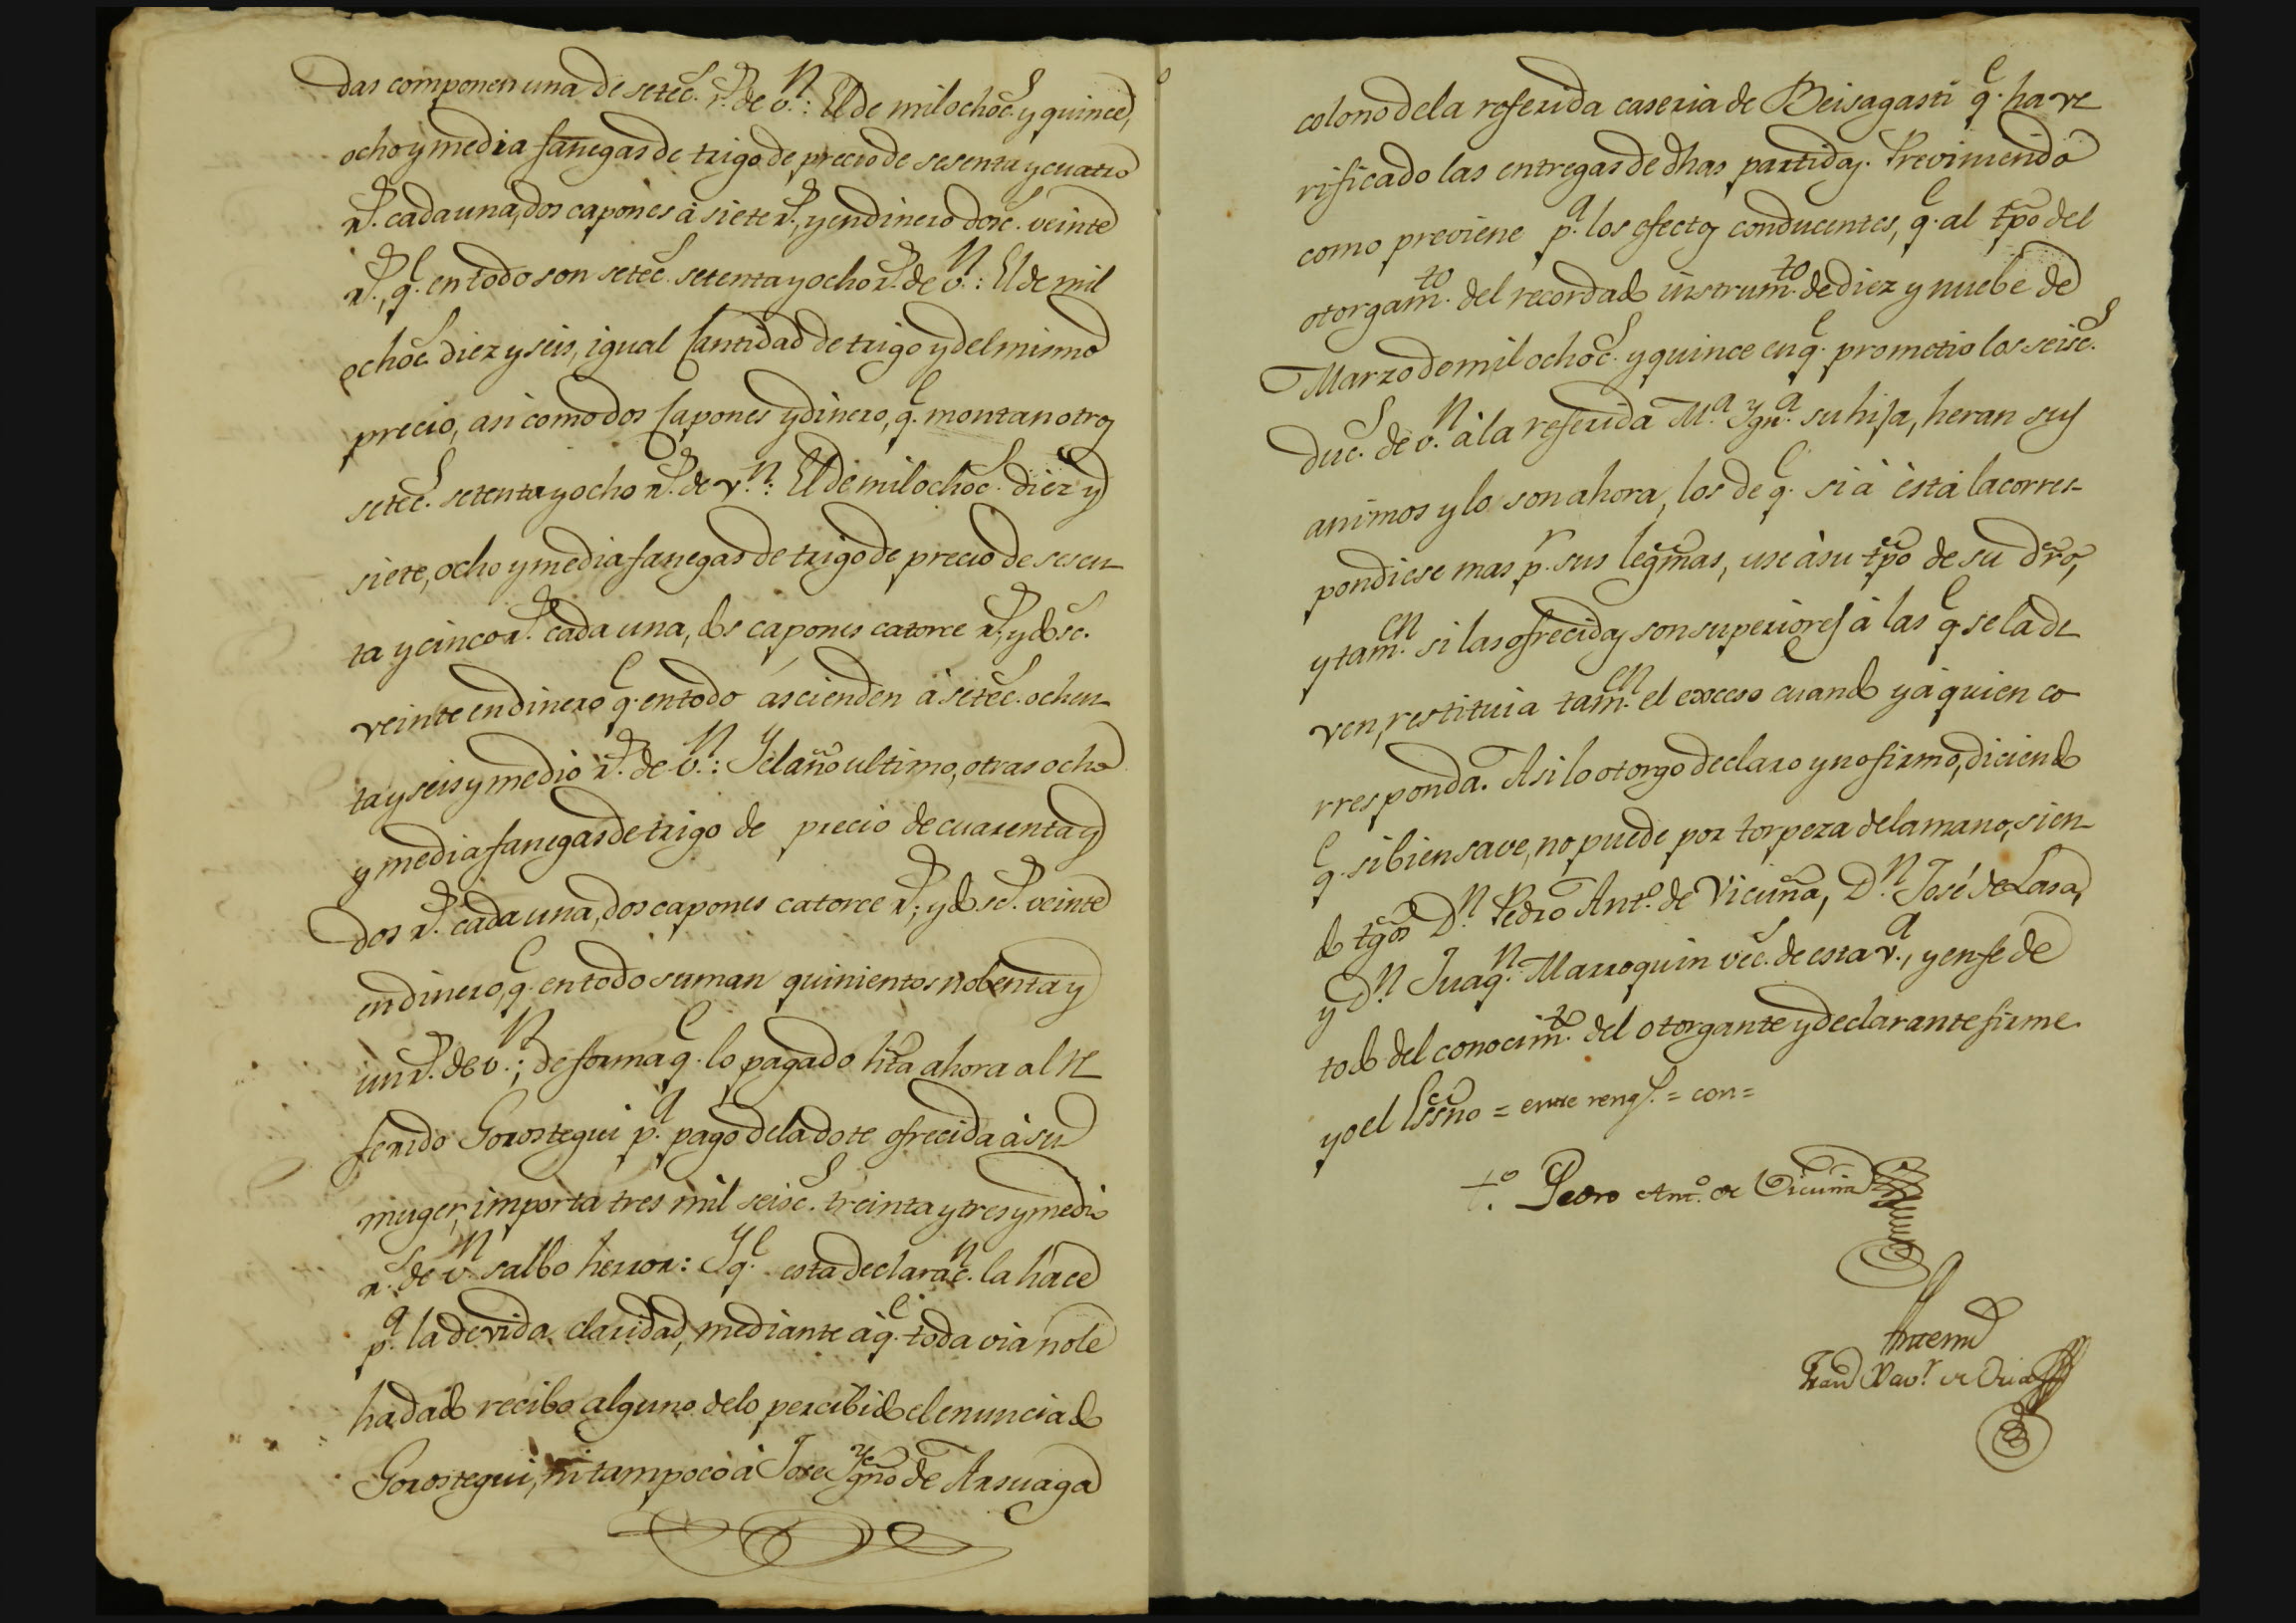 das componen una de setec.s r.s de v.n: El de mil ochoc.s y quince,
ocho y media fanegas de trigo de precio de sesenta y cuatro
r.s cada una, dos capones à siete r.s, y en dinero dosc.s veinte
r.s, q.e en todo son setec.s setenta y ocho r.s de v.n: El de mil
ochoc.s diez y seis, igual Cantidad de trigo y del mismo
precio, asi como dos Capones y dinero, q.e montan otros
setec.s setenta y ocho r.s de v.n: El de mil ochoc.s diez y
siete, ocho y media fanegas de trigo de precio de sesen-
ta y cinco r.s cada una, dos capones catorce r.s, y dosc.s
veinte en dinero q.e en todo ascienden à setec.s ochen-
ta y seis y medio r.s de v.n: Y el año ultimo, otras ocho
y media fanegas de trigo de precio de cuarenta y
dos r.s cada una, dos capones catorce r.s; y dosc.s veinte
en dinero, q.e en todo suman quinientos nobenta y
un r.s de v.n; de forma q.e lo pagado hta ahora al re-
ferido Gorostegui p.a pago de la dote ofrecida à su
muger, importa tres mil seisc.s treinta y tres y medio
r.s de v.n salbo herror: Y q.e esta declarac.n la hace
p.a la devida claridad, mediante à q.e toda via no le
ha dado recibo alguno de lo percibido el enunciado
Gorostegui, ni tampoco à Jose Ygno de Arsuaga
colono de la referida caseria de Beisagasti q.e ha ve
rificado las entregas de dhas partidas. Previniendo
como previene p.a los efectos conducentes, q.e al tpo del
otorgam.to del recordado instrum.to de diez y nuebe de
Marzo de mil ochoc.s y quince en q.e prometio los seisc.s
duc.s de v.n à la referida M.a Ygn.a su hija, heran sus
animos y lo son ahora, los de q.e si à èsta la corres-
pondiese mas p.r sus legmas, use à su tpo de su dro,
y tam.en si las ofrecidas son superiores à las q.e se la de
ven, restituia tam.en el exceso cuando y à quien co
rresponda. Asi lo otorgo declaro y no firmò, diciendo
q.e si bien save, no puede por torpeza de la mano, sien-
do tgos D.n Pedro Ant.o de Vicuña, D.n José de Lasa,
y D.n Juaq.n Marroquin vec.s de esta v.a, y en fe de
todo del conocim.to del otorgante y declarante firme
yo el Essno = entre rengs. = con =
t.o Pedro Ant.o de Vicuña
Antemi
Fran.co Xav.r de Oria